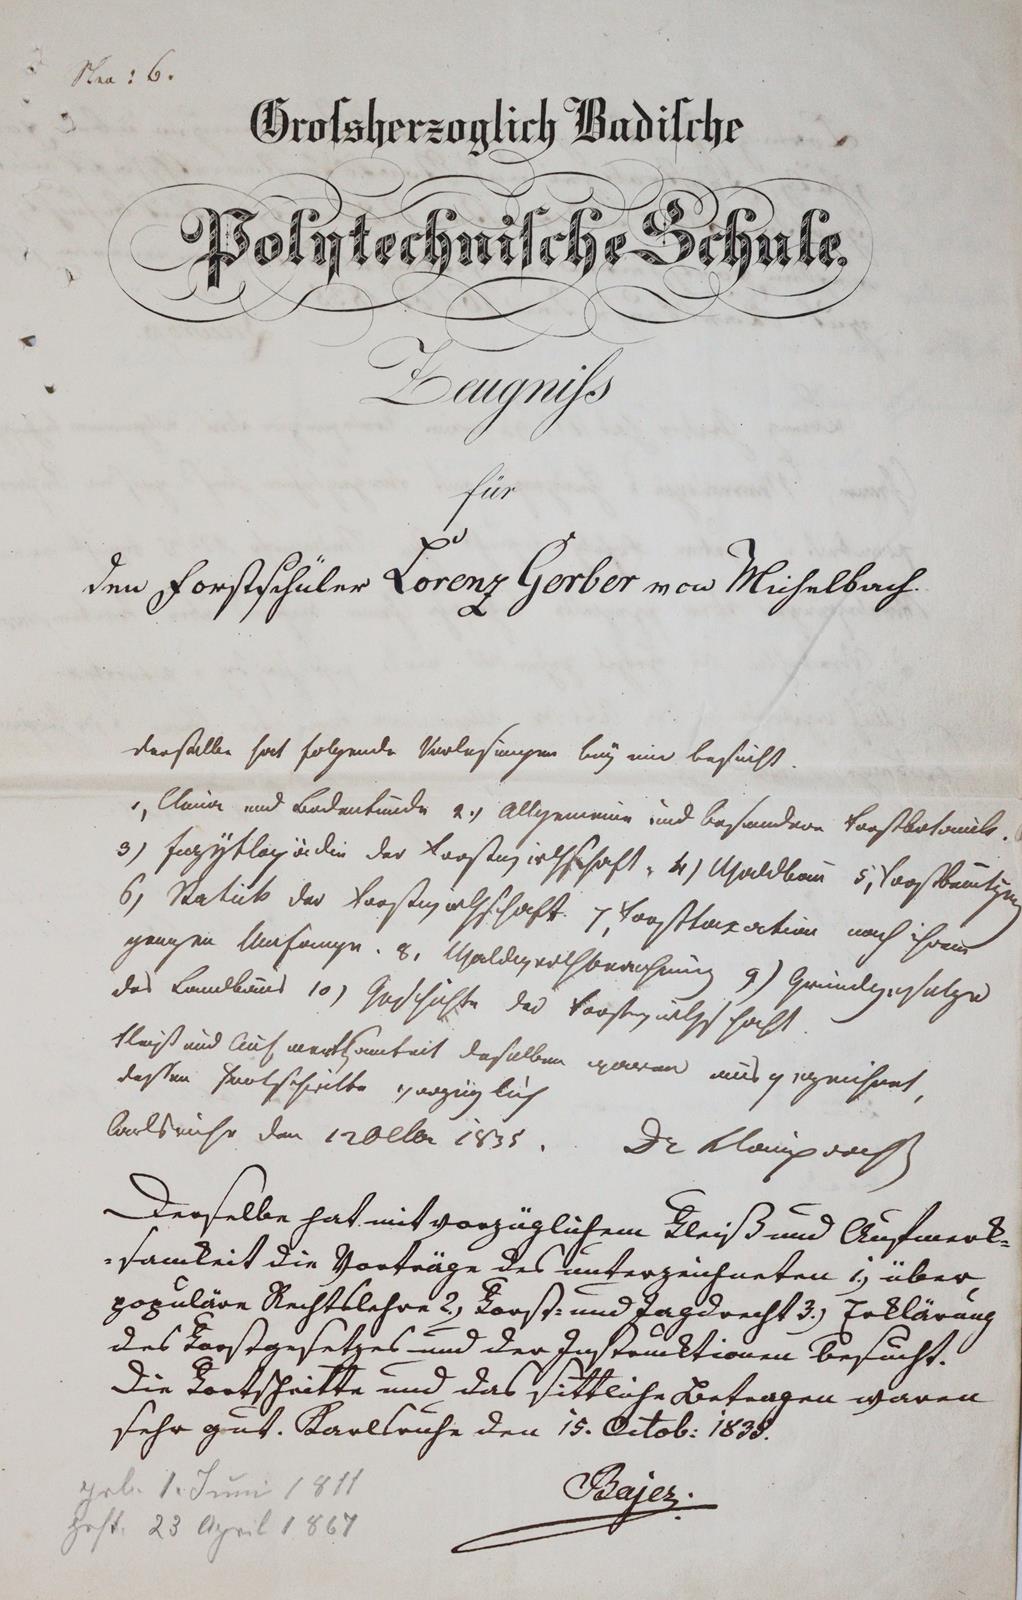 Nro: 6.
Grossherzoglich Badische
Polytechnische Schule.
Zeugniss
für
den Forstschüler Lorenz Gerber von Michelbach.
Derselbe hat folgende Vorlesungen bey mir besucht.
1, Clima und Bodenkunde 2.) Allgemeine und besondere Forstbotanik.
3) Enzyklopädie der Forstwirthschaft. 4) Waldbau 5, Forstbenutzung
6, Statik der Forstwirthschaft. 7, Forsttaxation nach ihrem
ganzen Umfange. 8, Waldwerthberechnung 9) Grundzüge
des Landbaus 10) Geschichte der Forstwirthschaft.
Fleiß und Aufmerksamkeit desselben waren ausgezeichnet,
dessen Fortschritte vorzüglich
Carlsruhe den 12 1835. Dr Klauprecht
Derselbe hat mit vorzüglichem Fleiß und Aufmerk=
=samkeit die Vorträge des unterzeichneten 1,) über
populäre Rechtslehre 2,) Forst= und Jagdrecht 3.) Erklärung
des Forstgesetzes und der Instruktionen besucht.
Die Fortschritte und das sittliche Betragen waren
sehr gut. Karlsruhe den 15. Octob: 1835.
Bajer.
geb. 1. Juni 1811
gest. 23 April 1867